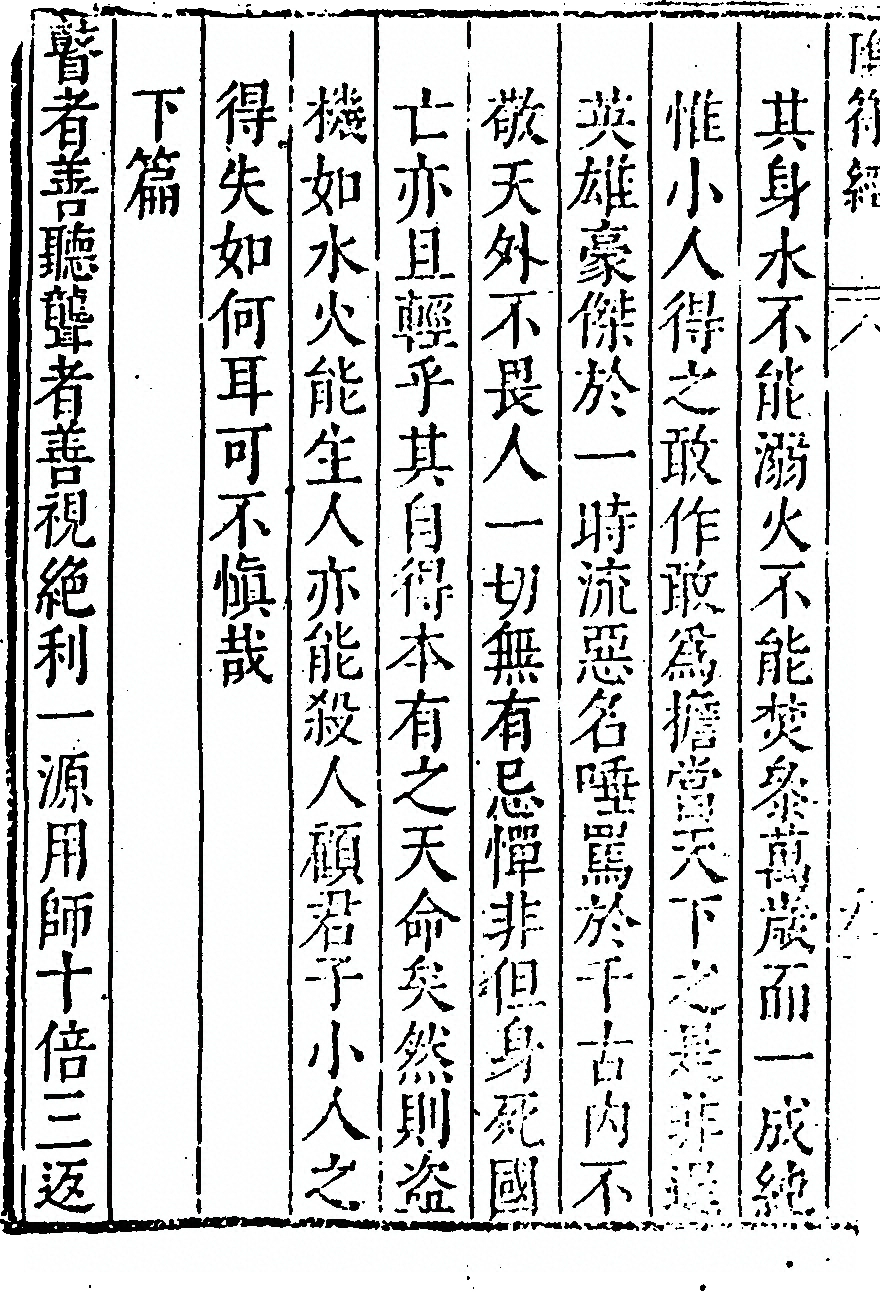 陰符經
其身水不能溺火不能焚叅萬歲而一成純
惟小人得之敢作敢爲擔當天下之是非逞
英雄豪傑於一時流惡名唾罵於千古內不
敬天外不畏人一切無有忌憚非但身死國
亡亦且輕乎其自得本有之天命矣然則盗
機如水火能生人亦能殺人顧君子小人之
得失如何耳可不慎哉
下篇
瞽者善聽聾者善視絶利一源用師十倍三返